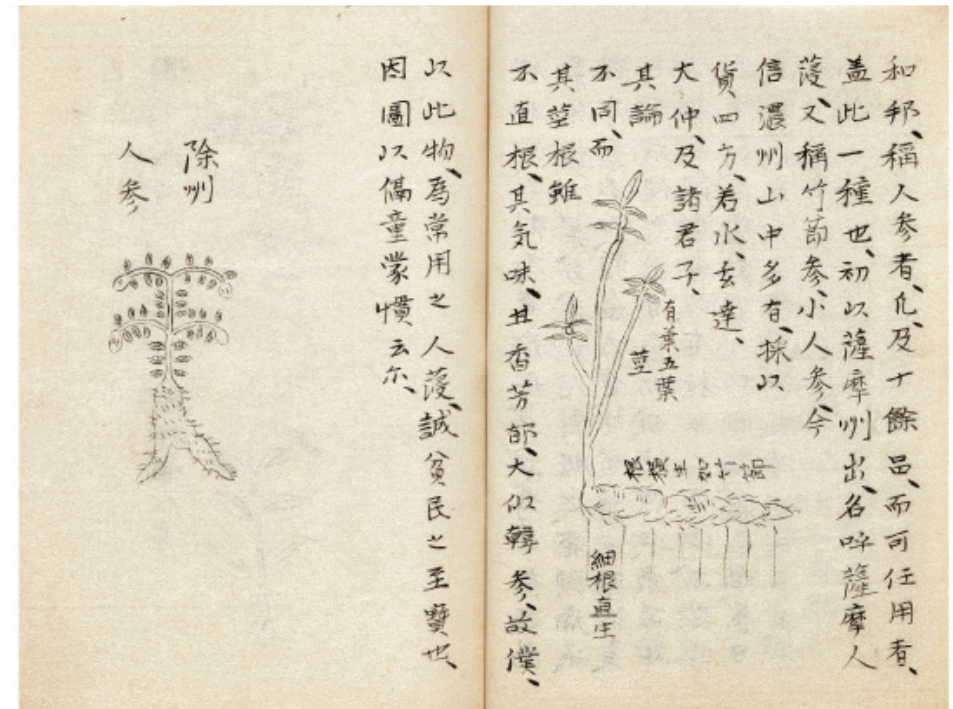 和邦、稱人参者、凢、及十餘品、而可任用者、
盖此一種也、初以薩摩州出、名呼薩摩人
葠、又稱竹節参、小人参、今
信濃州山中多有、採以
貨四方、若水、玄達、
大仲、及諸君子、
其論
不同、而
其莖根雖
不直根、其気味、且香芳郎、大似韓参、故僕、
有葉五葉
莖
根横生如竹節
細根直生
以此物、為常用之人葠、誠貧民之至寶也、
因圖以備童蒙慣云尓、
除州
人参